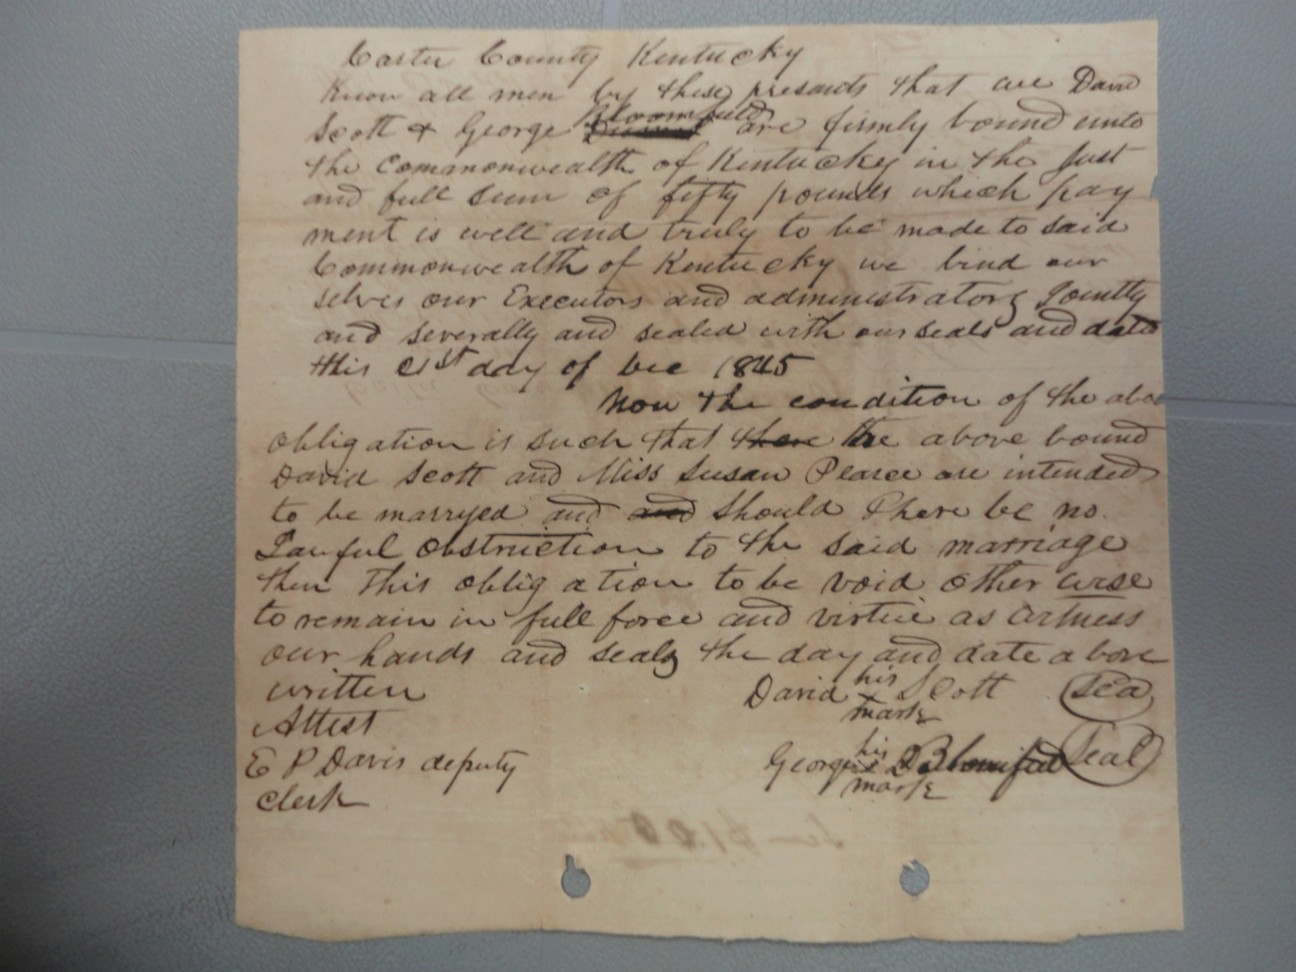 Carter County Kentucky
Know all men by these presants that we David
Scott & George Bloomfield are firmly bound unto
the Commonwealth of Kentucky in the Just
and full sum of fifty pounds which pay
ment is well and truly to be made to said
Commonwealth of Kentucky we bind our
selves our Executors and administrators Jointly
and severally and sealed with our seals and date
this 21st day of Dec 1845
Now the condition of the abo
obligation is such that there the above bound
David Scott and Miss Susan Pearce are intended
to be marryed and and should there be no
Lawful obstruction to the said marriage
then this obligation to be void other wise
to remain in full force and virtue as witness
our hands and seals the day and date above
written
David his Scott Sea
mark
Attest
E P Davis deputy
Clerk
George his Blomifed Seal
mark